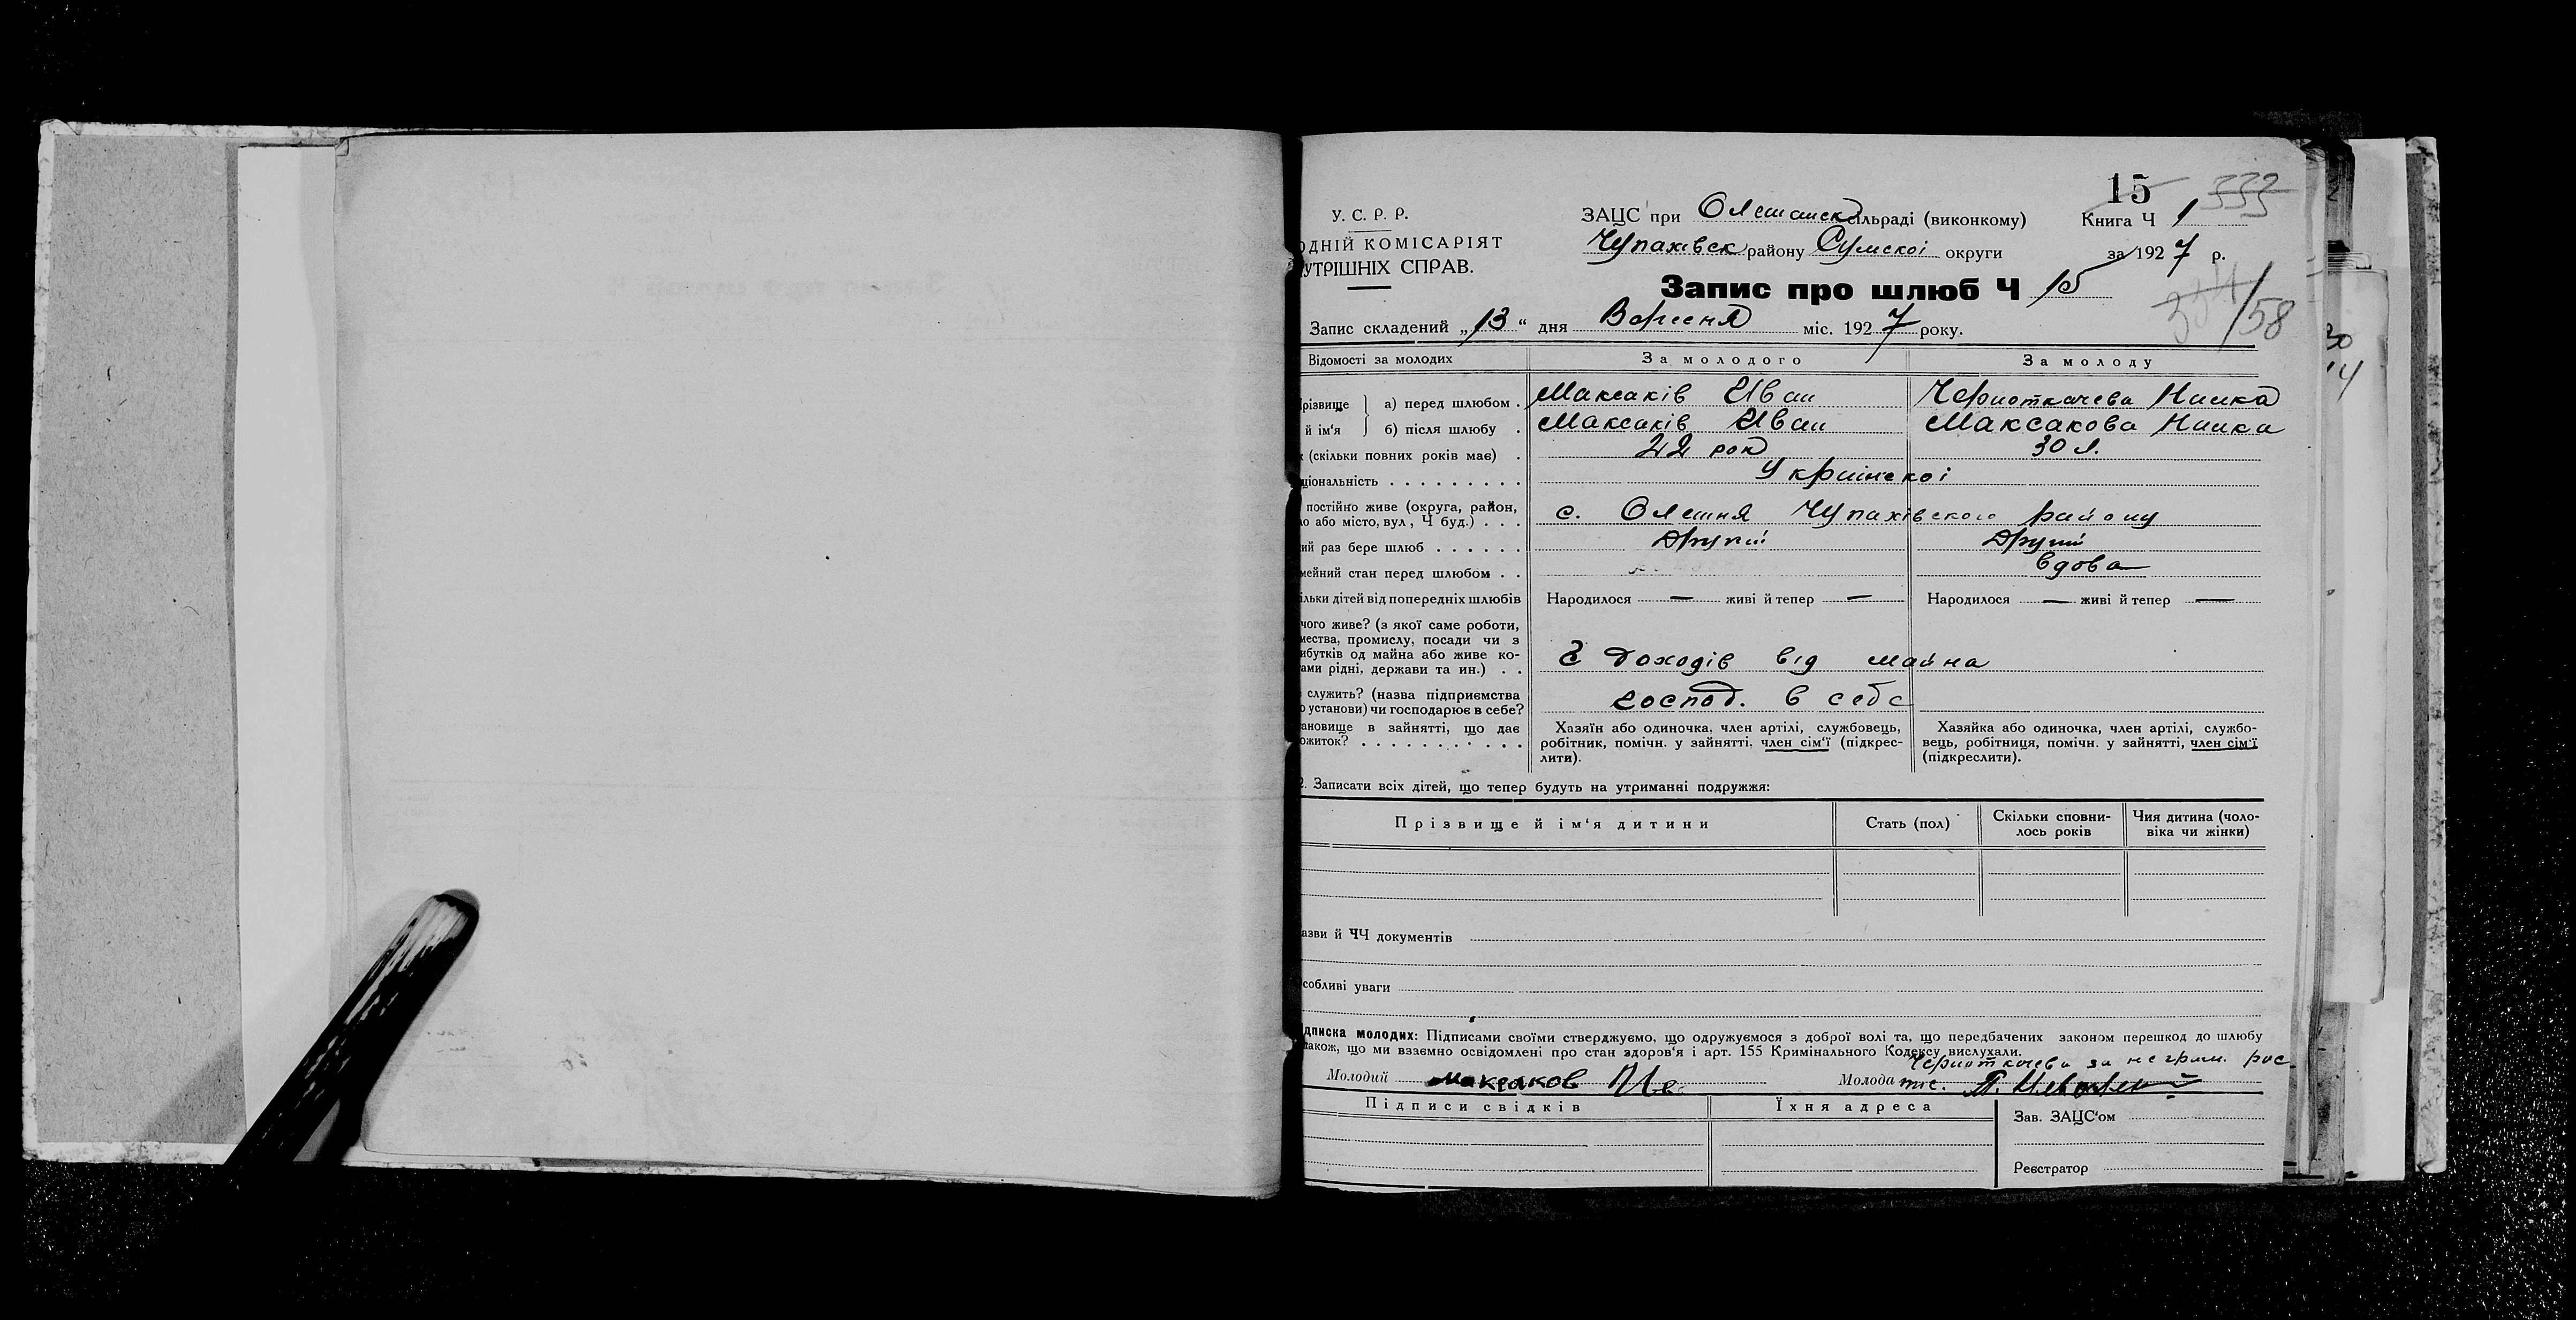 15 333
У. С. Р. Р. ЗАЦС при Олешанск сільраді (виконкому) Книга Ч 1
ОДНІЙ КОМІСАРІЯТ Чупахівск району Сумскоі округи за 1927 р.
УТРІШНІХ СПРАВ.
Запис про шлюб Ч 15
58
Запис складений „13“ дня Вересня міс. 1927 року.
Відомості за молодих За молодого За молоду
різвище а) перед шлюбом . Максаків Иван Чернаткачева Нилка
й ім'я б) після шлюбу . Максаків Иван Максакова Нилка
(скільки повних років має) . 22 рок 30 л.
ціональність . . . . . . . . . Українскоі
постійно живе (округа, район, с. Олешня Чупахівского району
о або місто, вул , Ч буд.) . . .
ий раз бере шлюб . . . . . . Другий Другий
мейний стан перед шлюбом . . вдова
ільки дітей від попередніх шлюбів Народилося — живі й тепер — Народилося — живі й тепер —
чого живе? (з якої саме роботи,
мества, промислу, посади чи з
ибутків од майна або живе ко-
ами рідні, держави та ин.) . . З доходів від майна
служить? (назва підприємства господ. в себе
о установи) чи господарює в себе?
ановище в зайнятті, що дає Хазяїн або одиночка, член артілі, службовець, Хазяйка або одиночка, член артілі, службо-
ожиток? . . . . . . . . . . . робітник, помічн. у зайнятті, член сім'ї (підкрес- вець, робітниця, помічн. у зайнятті, член сім'ї
лити). (підкреслити).
2. Записати всіх дітей, що тепер будуть на утриманні подружжя:
Прізвище й ім'я дитини Стать (пол) Скільки сповни- Чия дитина (чоло-
лось років віка чи жінки)
азви й ЧЧ документів
собливі уваги
дписка молодих: Підписами своїми стверджуємо, що одружуємося з доброї волі та, що передбачених законом перешкод до шлюбу
також, що ми взаємно освідомлені про стан здоров'я і арт. 155 Кримінального Кодексу вислухали.
Черноткачева за неграм. рос
Молодий Максаков Ив Молода
Підписи свідків Їхня адреса Зав. ЗАЦС'ом
Реєстратор